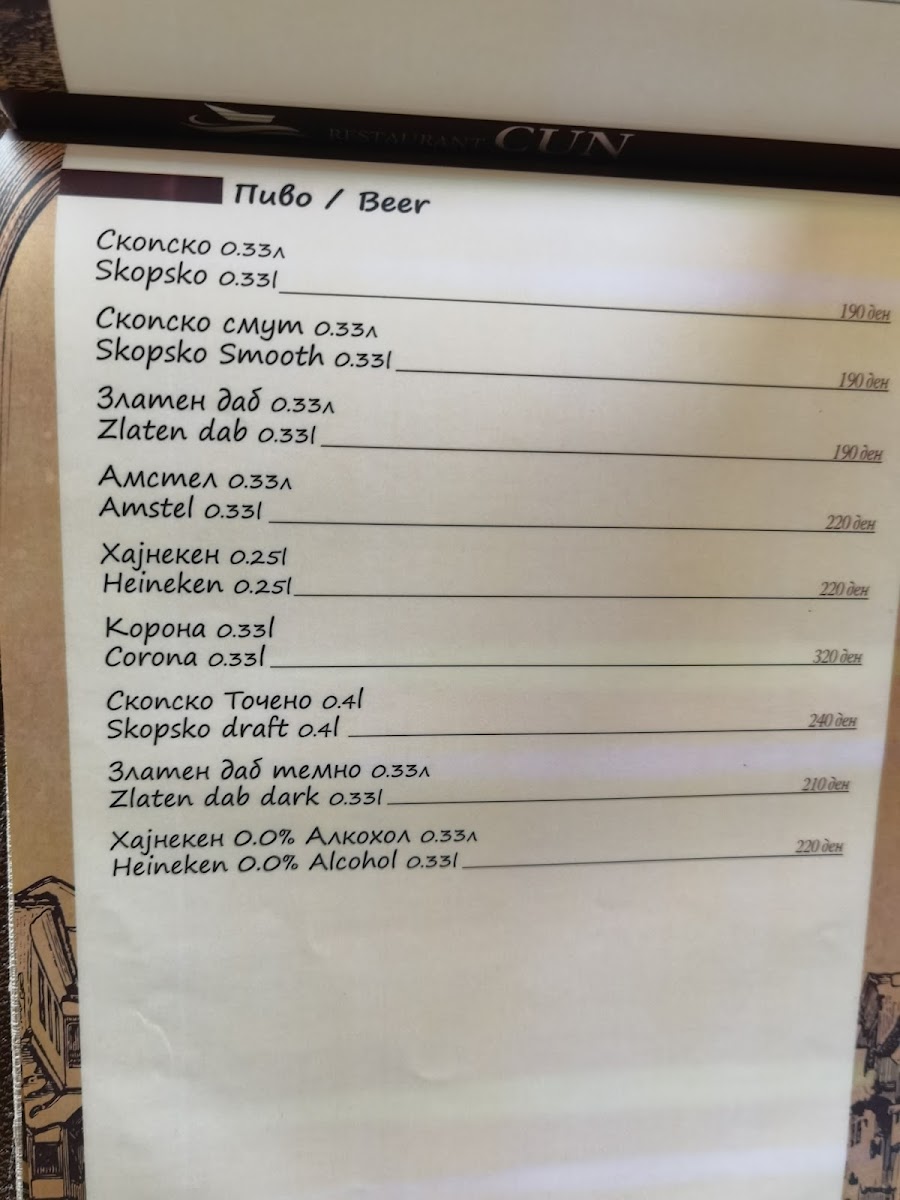 RESTAURANT CUN
Пиво / Beer
Скопско 0.33л
Skopsko 0.33l 190 ден
Скопско смут 0.33л
Skopsko Smooth 0.33l 190 ден
Златен даб 0.33л
Zlaten dab 0.33l 190 ден
Амстел 0.33л
Amstel 0.33l 220 ден
Хајнекен 0.25l
Heineken 0.25l 220 ден
Корона 0.33l
Corona 0.33l 320 ден
Скопско Точено 0.4l
Skopsko draft 0.4l 240 ден
Златен даб темно 0.33л
Zlaten dab dark 0.33l 210 ден
Хајнекен 0.0% Алкохол 0.33л
Heineken 0.0% Alcohol 0.33l 220 ден